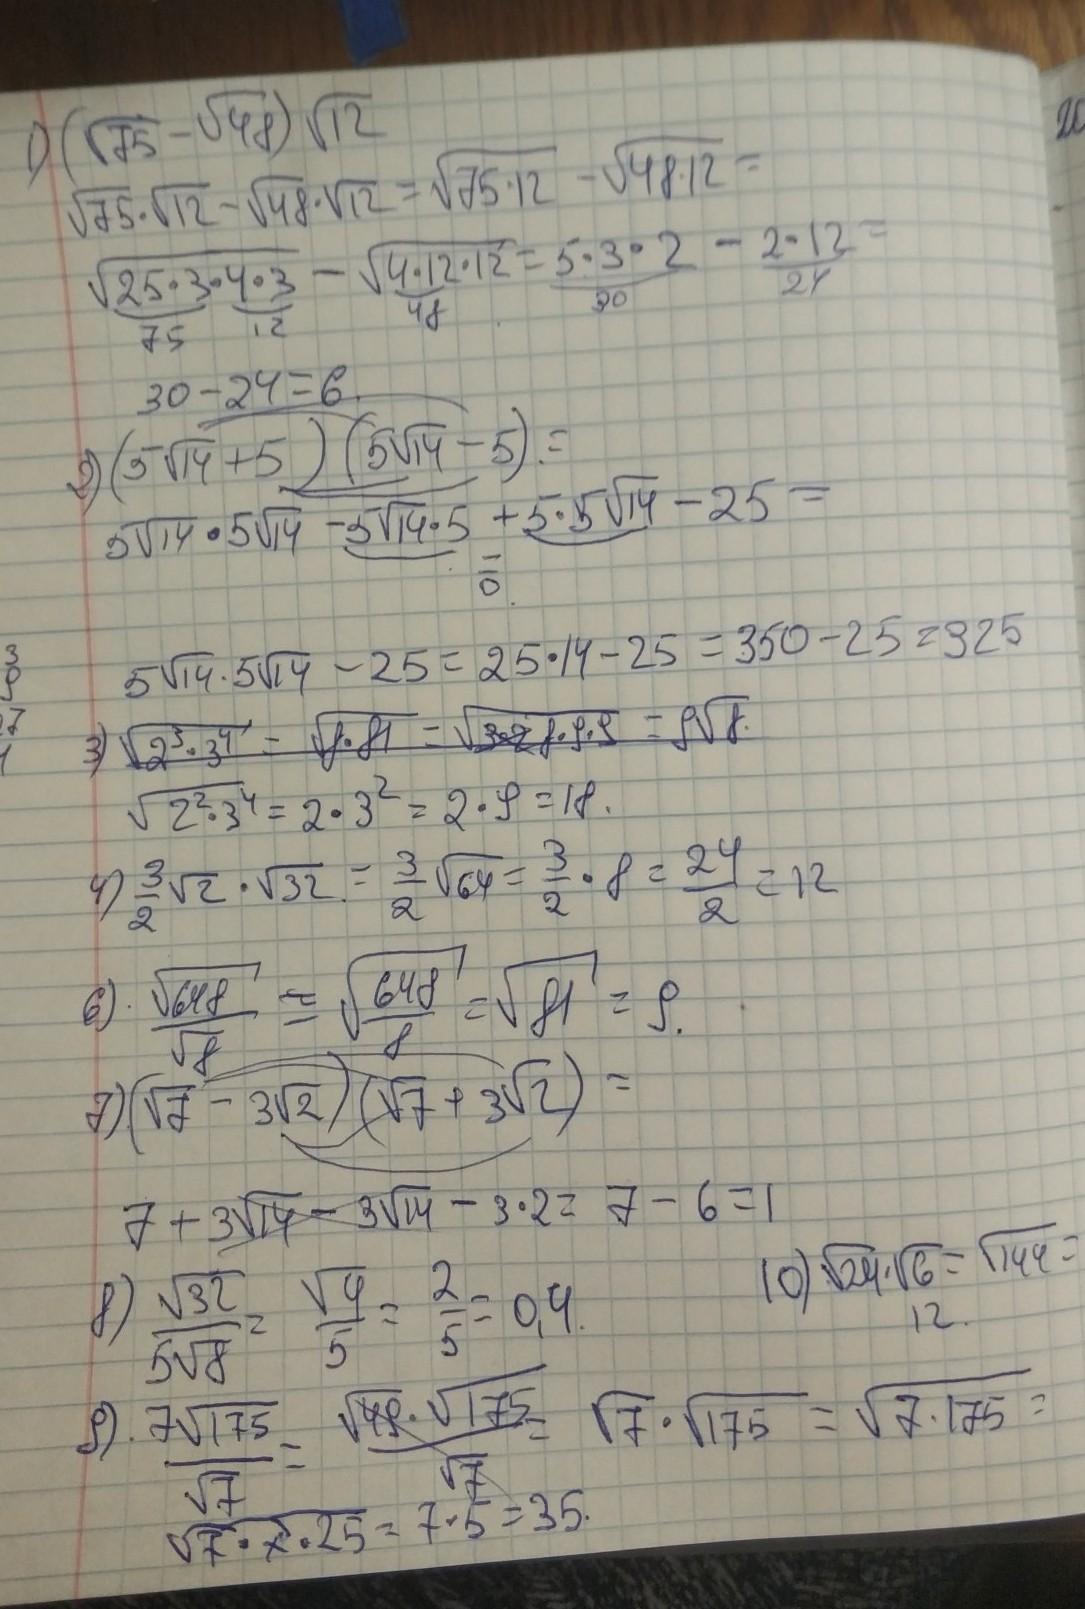 1) (√75 − √48) √12
√75·√12 − √48·√12 = √75·12 − √48·12 =
√25·3·4·3 − √4·12·12 = 5·3·2 − 2·12 =
75 12 48 30 24
30 − 24 = 6.
2) (5√14 + 5) (5√14 − 5) =
5√14·5√14 − 5√14·5 + 5·5√14 − 25 =
= 0.
5√14·5√14 − 25 = 25·14 − 25 = 350 − 25 = 325
3) √2³·3⁴ = √8·81 = √8·9·9 = 9√8.
√2²·3⁴ = 2·3² = 2·9 = 18.
4) 3/2 √2·√32 = 3/2 √64 = 3/2·8 = 24/2 = 12
6). √648/√8 = √648/8 = √81 = 9.
7) (√7 − 3√2) (√7 + 3√2) =
7 + 3√14 − 3√14 − 3·2 = 7 − 6 = 1
8) √32/5√8 = √4/5 = 2/5 = 0,4.
10) √24·√6 = √144 =
12.
9). 7√175/√7 = √49·√175/√7 = √7·√175 = √7·175 =
√7·7·25 = 7·5 = 35.